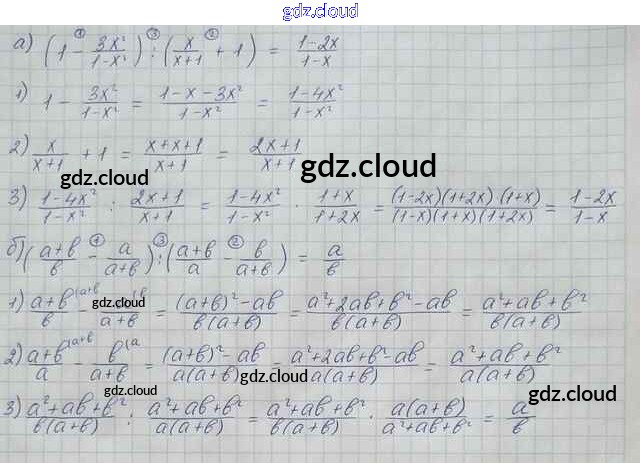 gdz.cloud
а) (1 - 3x²/(1-x²)) : (x/(x+1) + 1) = (1-2x)/(1-x)
1) 1 - 3x²/(1-x²) = (1-x-3x²)/(1-x²) = (1-4x²)/(1-x²)
2) x/(x+1) + 1 = (x+x+1)/(x+1) = (2x+1)/(x+1)
gdz.cloud gdz.cloud
3) (1-4x²)/(1-x²) : (2x+1)/(x+1) = (1-4x²)/(1-x²) · (1+x)/(1+2x) = (1-2x)(1+2x)(1+x)/((1-x)(1+x)(1+2x)) = (1-2x)/(1-x)
б) ((a+b)/b - a/(a+b)) : ((a+b)/a - b/(a+b)) = a/b
1) (a+b)/b - a/(a+b) = ((a+b)²-ab)/(b(a+b)) = (a²+2ab+b²-ab)/(b(a+b)) = (a²+ab+b²)/(b(a+b))
gdz.cloud
2) (a+b)/a - b/(a+b) = ((a+b)²-ab)/(a(a+b)) = (a²+2ab+b²-ab)/(a(a+b)) = (a²+ab+b²)/(a(a+b))
gdz.cloud
3) (a²+ab+b²)/(b(a+b)) : (a²+ab+b²)/(a(a+b)) = (a²+ab+b²)/(b(a+b)) · a(a+b)/(a²+ab+b²) = a/b
gdz.cloud gdz.cloud